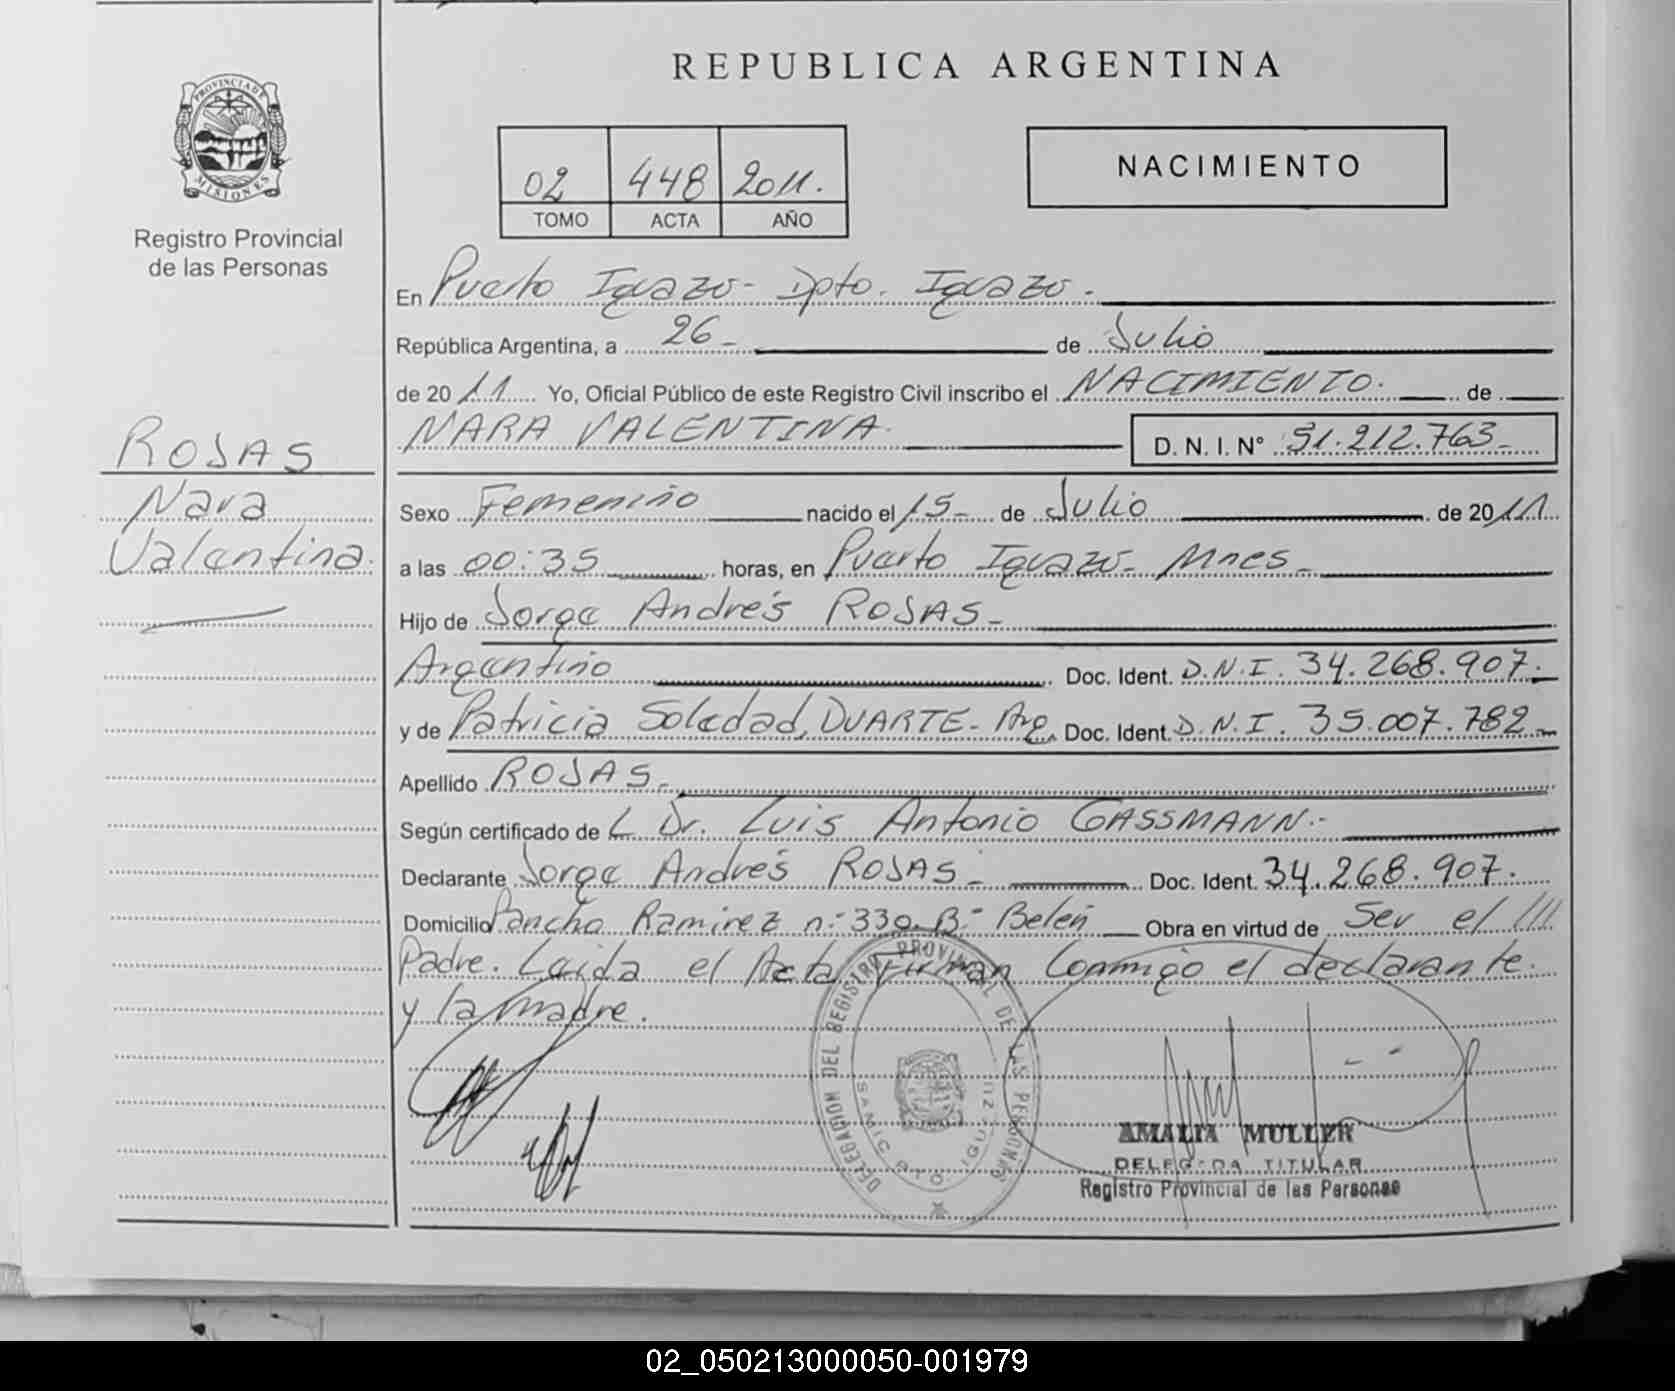 REPUBLICA ARGENTINA
PROVINCIA DE
MISIONES
Registro Provincial
de las Personas
02 448 2011.
TOMO ACTA AÑO
NACIMIENTO
En Puerto Iguazú- Dpto. Iguazú.
República Argentina, a 26- de Julio
de 2011 Yo, Oficial Público de este Registro Civil inscribo el NACIMIENTO. de
NARA VALENTINA. D. N. I. N° 51.212.763-
ROJAS
Nara
Valentina.
Sexo Femenino nacido el 15- de Julio de 2011
a las 00:35 horas, en Puerto Iguazú- Mnes-
Hijo de Jorge Andrés ROJAS-
Argentino Doc. Ident. D.N.I. 34.268.907.
y de Patricia Soledad, DUARTE- Arg. Doc. Ident. D.N.I. 35.007.782-
Apellido ROJAS-
Según certificado de L Dr. Luis Antonio GASSMANN.-
Declarante Jorge Andrés ROJAS- Doc. Ident. 34.268.907.
Domicilio Pancho Ramirez n: 330. B- Belén Obra en virtud de Ser el
Padre. Leida el Acta Firman Conmigo el declarante.
y la madre.
DELEGACION DEL REGISTRO PROVINCIAL DE LAS PERSONAS
SAMIC PTO. IGUAZU
AMALIA MULLER
DELEGADA TITULAR
Registro Provincial de las Personas
02_050213000050-001979